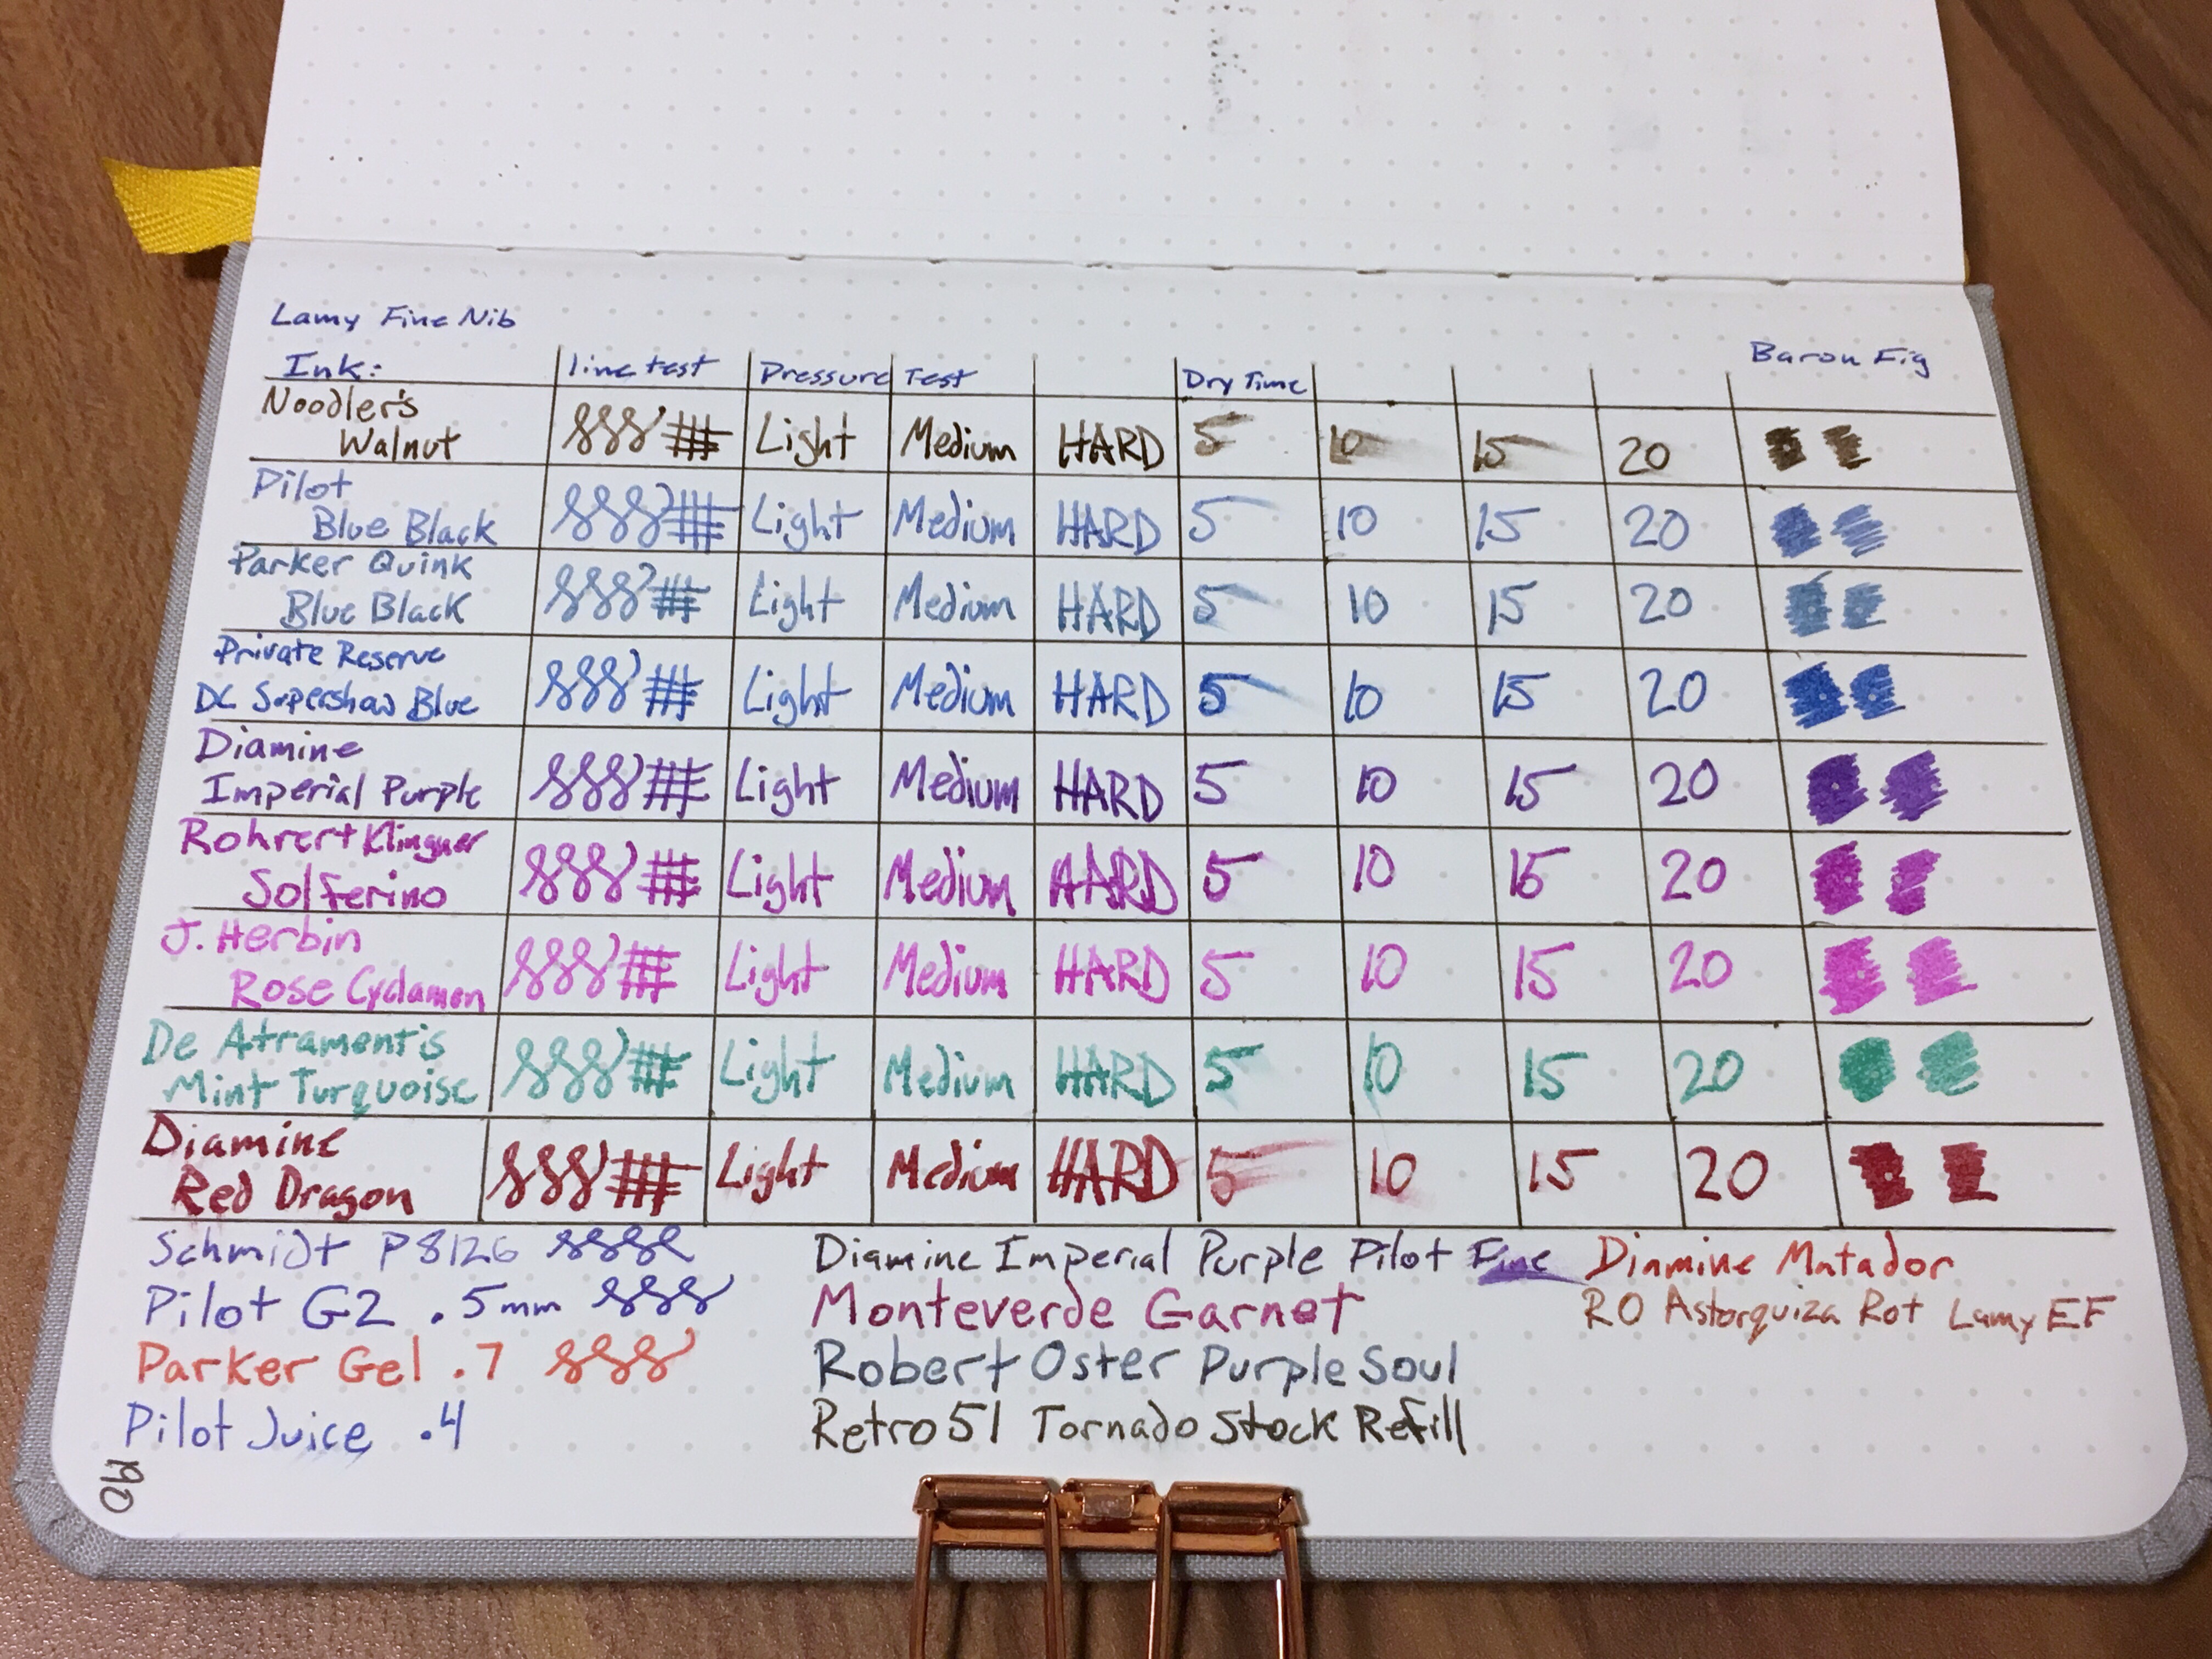 Lamy Fine Nib
Baron Fig
Ink: line test Pressure Test Dry Time
Noodler's
Walnut Light Medium HARD 5 10 15 20
Pilot
Blue Black Light Medium HARD 5 10 15 20
Parker Quink
Blue Black Light Medium HARD 5 10 15 20
Private Reserve
DC Supershow Blue Light Medium HARD 5 10 15 20
Diamine
Imperial Purple Light Medium HARD 5 10 15 20
Rohrer+Klingner
Solferino Light Medium HARD 5 10 15 20
J. Herbin
Rose Cyclamen Light Medium HARD 5 10 15 20
De Atramentis
Mint Turquoise Light Medium HARD 5 10 15 20
Diamine
Red Dragon Light Medium HARD 5 10 15 20
Schmidt P8126
Pilot G2 .5mm
Parker Gel .7
Pilot Juice .4
Diamine Imperial Purple Pilot Fine
Monteverde Garnet
Robert Oster Purple Soul
Retro51 Tornado Stock Refill
Diamine Matador
RO Astorquiza Rot Lamy EF
190